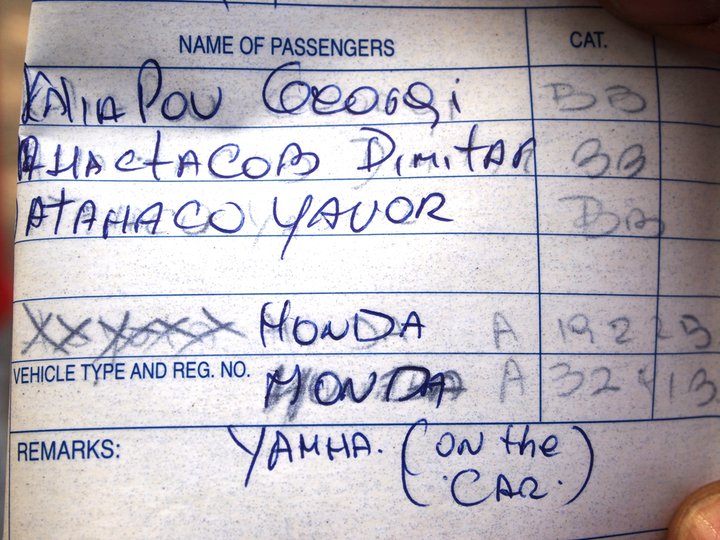 NAME OF PASSENGERS CAT.
KALIAPOV GEORGI BB
AHACTACOB DIMITAR BB
ATAHACO YAVOR BB
HONDA A 1922 B
VEHICLE TYPE AND REG. NO. HONDA A 32 13
REMARKS: YAMHA. (ON the
CAR.)